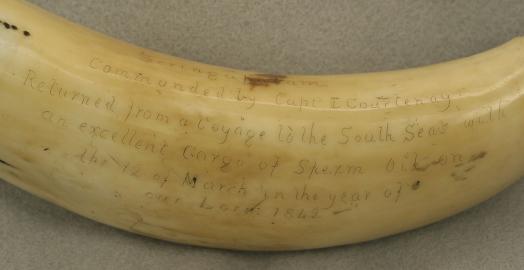 Seringapatam
Commanded by Capt E Courtenay
Returned from a Voyage to the South Seas with
an excellent Cargo of Sperm Oil on
the 12 of March in the year of
our Lord 1842